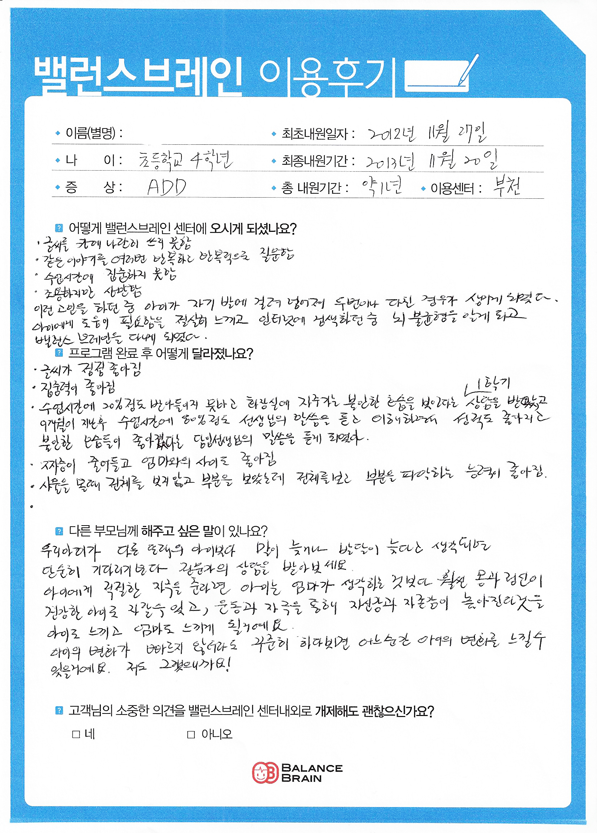 밸런스브레인 이용후기
이름(별명) : 최초내원일자 : 2012년 11월 27일
나 이 : 초등학교 4학년 최종내원기간 : 2013년 11월 20일
증 상 : ADD 총 내원기간 : 약1년 이용센터 : 부천
? 어떻게 밸런스브레인 센터에 오시게 되셨나요?
· 글씨를 칸에 나란히 쓰지 못함
· 같은 이야기를 여러번 반복하고 반복적으로 질문함
· 수업시간에 집중하지 못함
· 조용하지만 산만함
이런 고민을 하던 중 아이가 자기 발에 걸려 넘어져 두번이나 다친 경우가 생기게 되었다.
아이에게 도움이 필요함을 절실히 느끼고 인터넷에 검색하던 중 뇌 불균형을 알게 되고
밸런스 브레인을 다니게 되었다.
? 프로그램 완료 후 어떻게 달라졌나요?
· 글씨가 점점 좋아짐
· 집중력이 좋아짐
1학기
· 수업시간에 20%정도 받아들이지 못하고 화장실에 자주가는 불안한 모습을 보인다는 상담을 받았고
9개월이 지난후 수업시간에 80%정도 선생님의 말씀을 듣고 이해하면서 성적도 좋아지고
불안한 모습들이 좋아졌다는 담임선생님의 말씀을 듣게 되었다.
· 짜증이 줄어들고 엄마와의 사이도 좋아짐
· 사물을 볼때 전체를 보지않고 부분을 보았는데 전체를보고 부분을 파악하는 능력이 좋아짐.
·
? 다른 부모님께 해주고 싶은 말이 있나요?
우리아이가 다른 또래의 아이보다 많이 늦거나 발달이 늦다고 생각되면
단순히 기다리기보다 전문가의 상담을 받아보세요.
아이에게 적절한 자극을 준다면 아이는 엄마가 생각하는 것보다 훨씬 몸과 정신이
건강한 아이로 자랄수 있고, 운동과 자극을 통해 자신감과 자존감이 높아진다는것을
아이도 느끼고 엄마도 느끼게 될거에요.
아이의 변화가 빠르지 않더라도 꾸준히 하다보면 어느순간 아이의 변화를 느낄수
있을거에요. 저도 그랬으니까요!
? 고객님의 소중한 의견을 밸런스브레인 센터내외로 개제해도 괜찮으신가요?
□ 네 □ 아니오
BALANCE
BRAIN